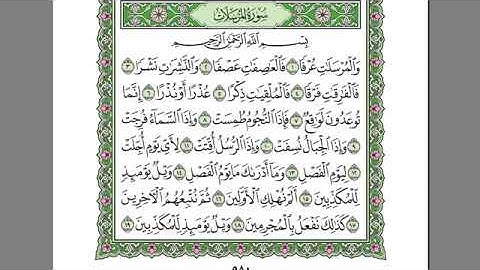 سُورَةُ المُرْسَلَاتِ
بِسْمِ اللَّهِ الرَّحْمَٰنِ الرَّحِيمِ
وَالْمُرْسَلَاتِ عُرْفًا ١ فَالْعَاصِفَاتِ عَصْفًا ٢ وَالنَّاشِرَاتِ نَشْرًا ٣
فَالْفَارِقَاتِ فَرْقًا ٤ فَالْمُلْقِيَاتِ ذِكْرًا ٥ عُذْرًا أَوْ نُذْرًا ٦ إِنَّمَا
تُوعَدُونَ لَوَاقِعٌ ٧ فَإِذَا النُّجُومُ طُمِسَتْ ٨ وَإِذَا السَّمَاءُ فُرِجَتْ
٩ وَإِذَا الْجِبَالُ نُسِفَتْ ١٠ وَإِذَا الرُّسُلُ أُقِّتَتْ ١١ لِأَيِّ يَوْمٍ أُجِّلَتْ
١٢ لِيَوْمِ الْفَصْلِ ١٣ وَمَا أَدْرَاكَ مَا يَوْمُ الْفَصْلِ ١٤ وَيْلٌ يَوْمَئِذٍ
لِّلْمُكَذِّبِينَ ١٥ أَلَمْ نُهْلِكِ الْأَوَّلِينَ ١٦ ثُمَّ نُتْبِعُهُمُ الْآخِرِينَ
١٧ كَذَٰلِكَ نَفْعَلُ بِالْمُجْرِمِينَ ١٨ وَيْلٌ يَوْمَئِذٍ لِّلْمُكَذِّبِينَ ١٩